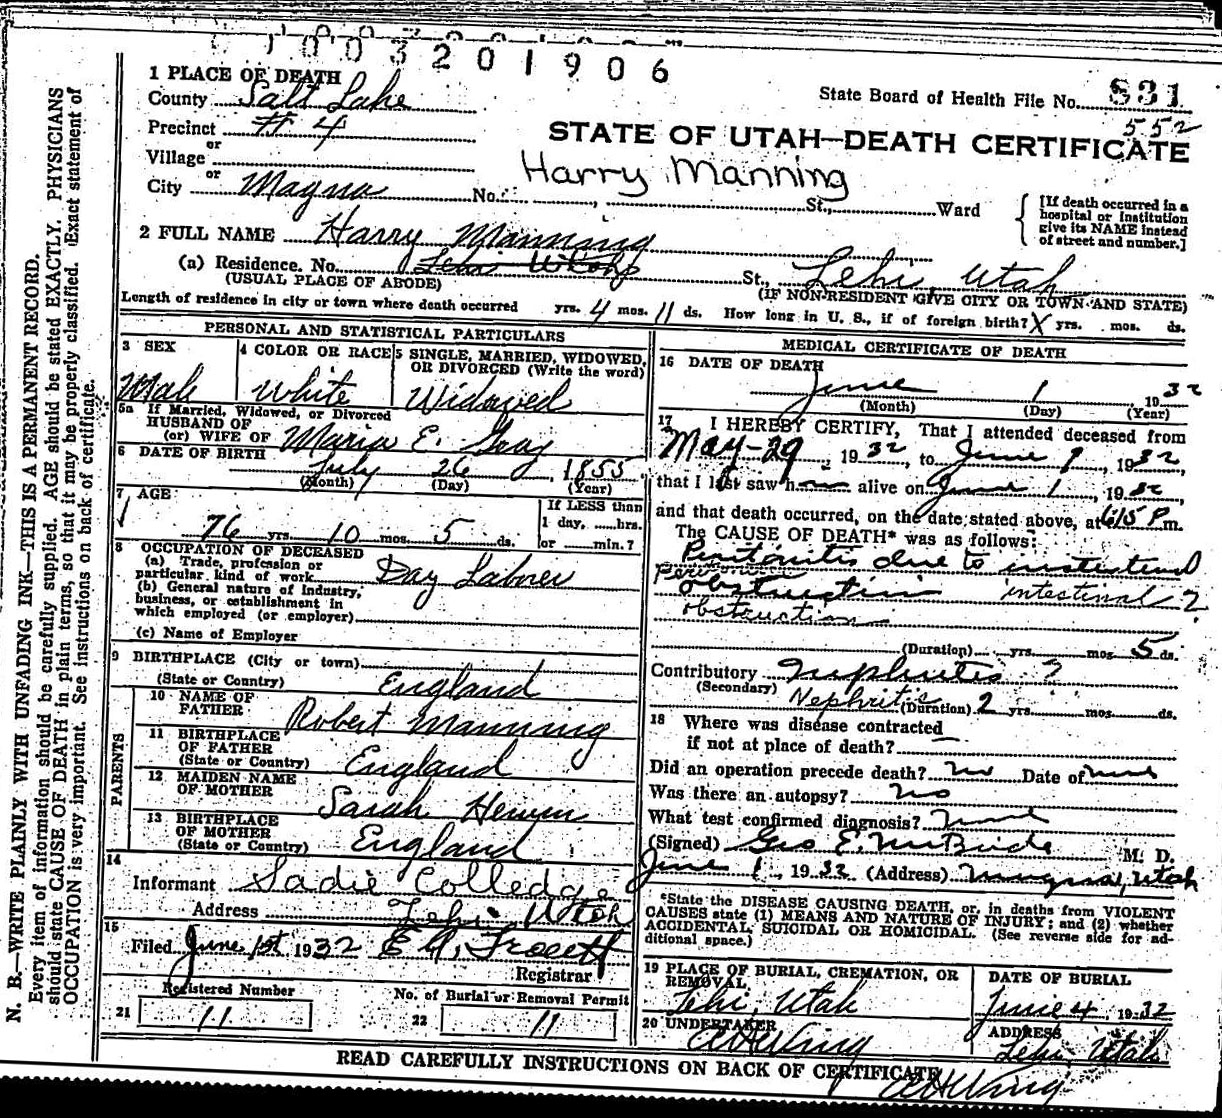 1003201906
1 PLACE OF DEATH
County Salt Lake
State Board of Health File No. 831
552
Precinct #4
or
Village
STATE OF UTAH—DEATH CERTIFICATE
Harry Manning
or
City Magna No. St., Ward
[If death occurred in a
hospital or institution
give its NAME instead
of street and number.]
2 FULL NAME Harry Manning
(a) Residence. No. Lehi Utah St., Lehi, Utah
(USUAL PLACE OF ABODE) (IF NON-RESIDENT GIVE CITY OR TOWN AND STATE)
Length of residence in city or town where death occurred yrs. 4 mos. 11 ds. How long in U. S., if of foreign birth? X yrs. mos. ds.
PERSONAL AND STATISTICAL PARTICULARS
3 SEX
Male
4 COLOR OR RACE
White
5 SINGLE, MARRIED, WIDOWED,
OR DIVORCED (Write the word)
Widowed
5a If Married, Widowed, or Divorced
HUSBAND OF
(or) WIFE OF Maria E. Gray
6 DATE OF BIRTH
July 26, 1855
(Month) (Day) (Year)
7 AGE
76 yrs. 10 mos. 5 ds.
If LESS than
1 day, ......hrs.
or ......min.?
8 OCCUPATION OF DECEASED
(a) Trade, profession or
particular kind of work Day Laborer
(b) General nature of Industry,
business, or establishment in
which employed (or employer)
(c) Name of Employer
9 BIRTHPLACE (City or town)
(State or Country) England
PARENTS
10 NAME OF
FATHER Robert Manning
11 BIRTHPLACE
OF FATHER
(State or Country) England
12 MAIDEN NAME
OF MOTHER Sarah
13 BIRTHPLACE
OF MOTHER
(State or Country) England
14
Informant Sadie Colledge
Address Lehi Utah
15
Filed June 1st 1932 E A
Registrar
Registered Number
21 11
No. of Burial or Removal Permit
22 11
MEDICAL CERTIFICATE OF DEATH
16 DATE OF DEATH
June 1 1932
(Month) (Day) (Year)
17 I HEREBY CERTIFY, That I attended deceased from
May-29, 1932, to June 1, 1932,
that I last saw h alive on June 1, 1932,
and that death occurred, on the date stated above, at 6:15 P.m.
The CAUSE OF DEATH* was as follows:
Peritonitis due to intestinal
peritonitis
obstruction intestinal ?
obstruction
(Duration) yrs. mos. 5 ds.
Contributory Nephritis ?
(Secondary)
Nephritis (Duration) 2 yrs. mos. ds.
18 Where was disease contracted
if not at place of death?
Did an operation precede death? no Date of
Was there an autopsy? no
What test confirmed diagnosis?
(Signed) Geo E. McBride M. D.
June 1, 1932 (Address) Magna, Utah
*State the DISEASE CAUSING DEATH, or, in deaths from VIOLENT
CAUSES state (1) MEANS AND NATURE OF INJURY; and (2) whether
ACCIDENTAL, SUICIDAL OR HOMICIDAL. (See reverse side for ad-
ditional space.)
19 PLACE OF BURIAL, CREMATION, OR
REMOVAL
Lehi, Utah
DATE OF BURIAL
June 4, 1932
20 UNDERTAKER
A H Wing
ADDRESS
Lehi Utah
READ CAREFULLY INSTRUCTIONS ON BACK OF CERTIFICATE
A H Wing
N. B.—WRITE PLAINLY WITH UNFADING INK—THIS IS A PERMANENT RECORD.
Every item of information should be carefully supplied. AGE should be stated EXACTLY. PHYSICIANS
should state CAUSE OF DEATH in plain terms, so that it may be properly classified. Exact statement of
OCCUPATION is very important. See instructions on back of certificate.